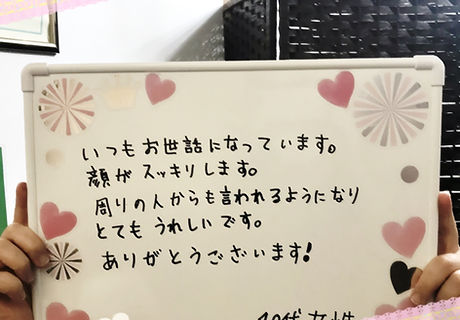 いつもお世話になっています。
顔がスッキリします。
周りの人からも言われるようになり
とてもうれしいです。
ありがとうございます!
代女性